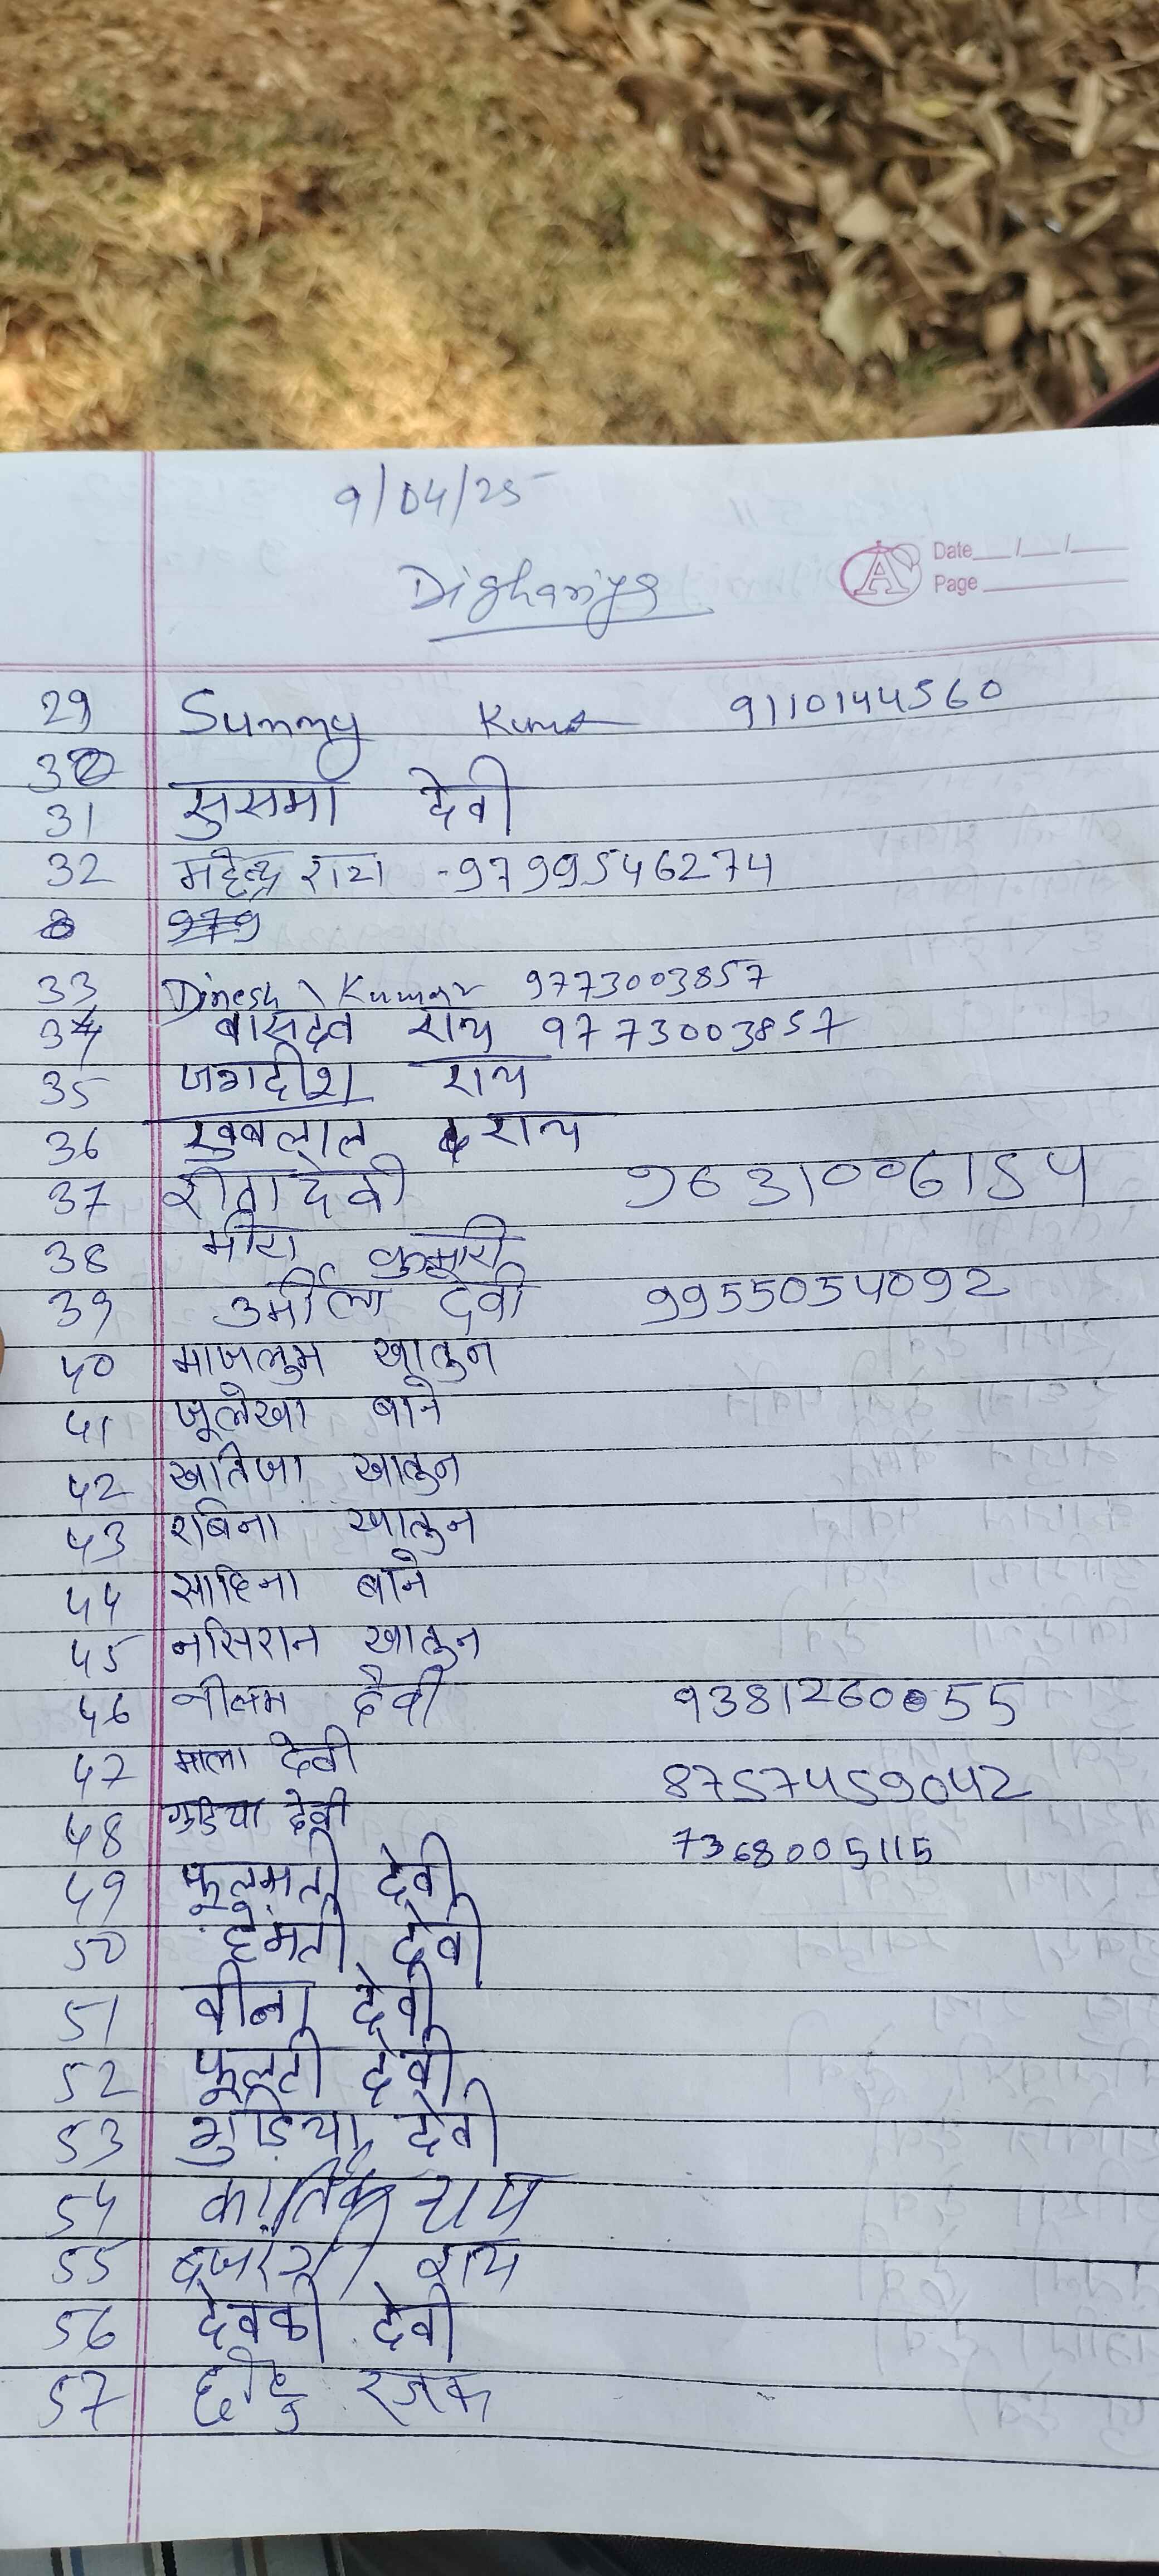 9/04/25
Dighariya
Date__/__/__
Page
29 Sunny Kumar 9110144560
30
31 सुसमा देवी
32 महेन्द्र राय -9799546274
979
33 Dinesh Kumar 9773003857
34 बासदेव राय 9773003857
35 जगदीश राय
36 खुबलाल राय
37 रीता देवी 9631006154
38 मीरा कुमारी
39 उर्मीला देवी 9955034092
40 माजलुम खातुन
41 जूलेखा बाने
42 खातिजा खातुन
43 रबिना खातुन
44 साहिना बाने
45 नसिरान खातुन
46 नीलम देवी 9381260055
47 माला देवी 8757459042
48 गुडिया देवी 7368005115
49 फूलमती देवी
50 हेमंती देवी
51 वीना देवी
52 फूलटी देवी
53 गुड़िया देवी
54 कार्तिक राय
55 बजरंगी राय
56 देवकी देवी
57 छोटु रजक